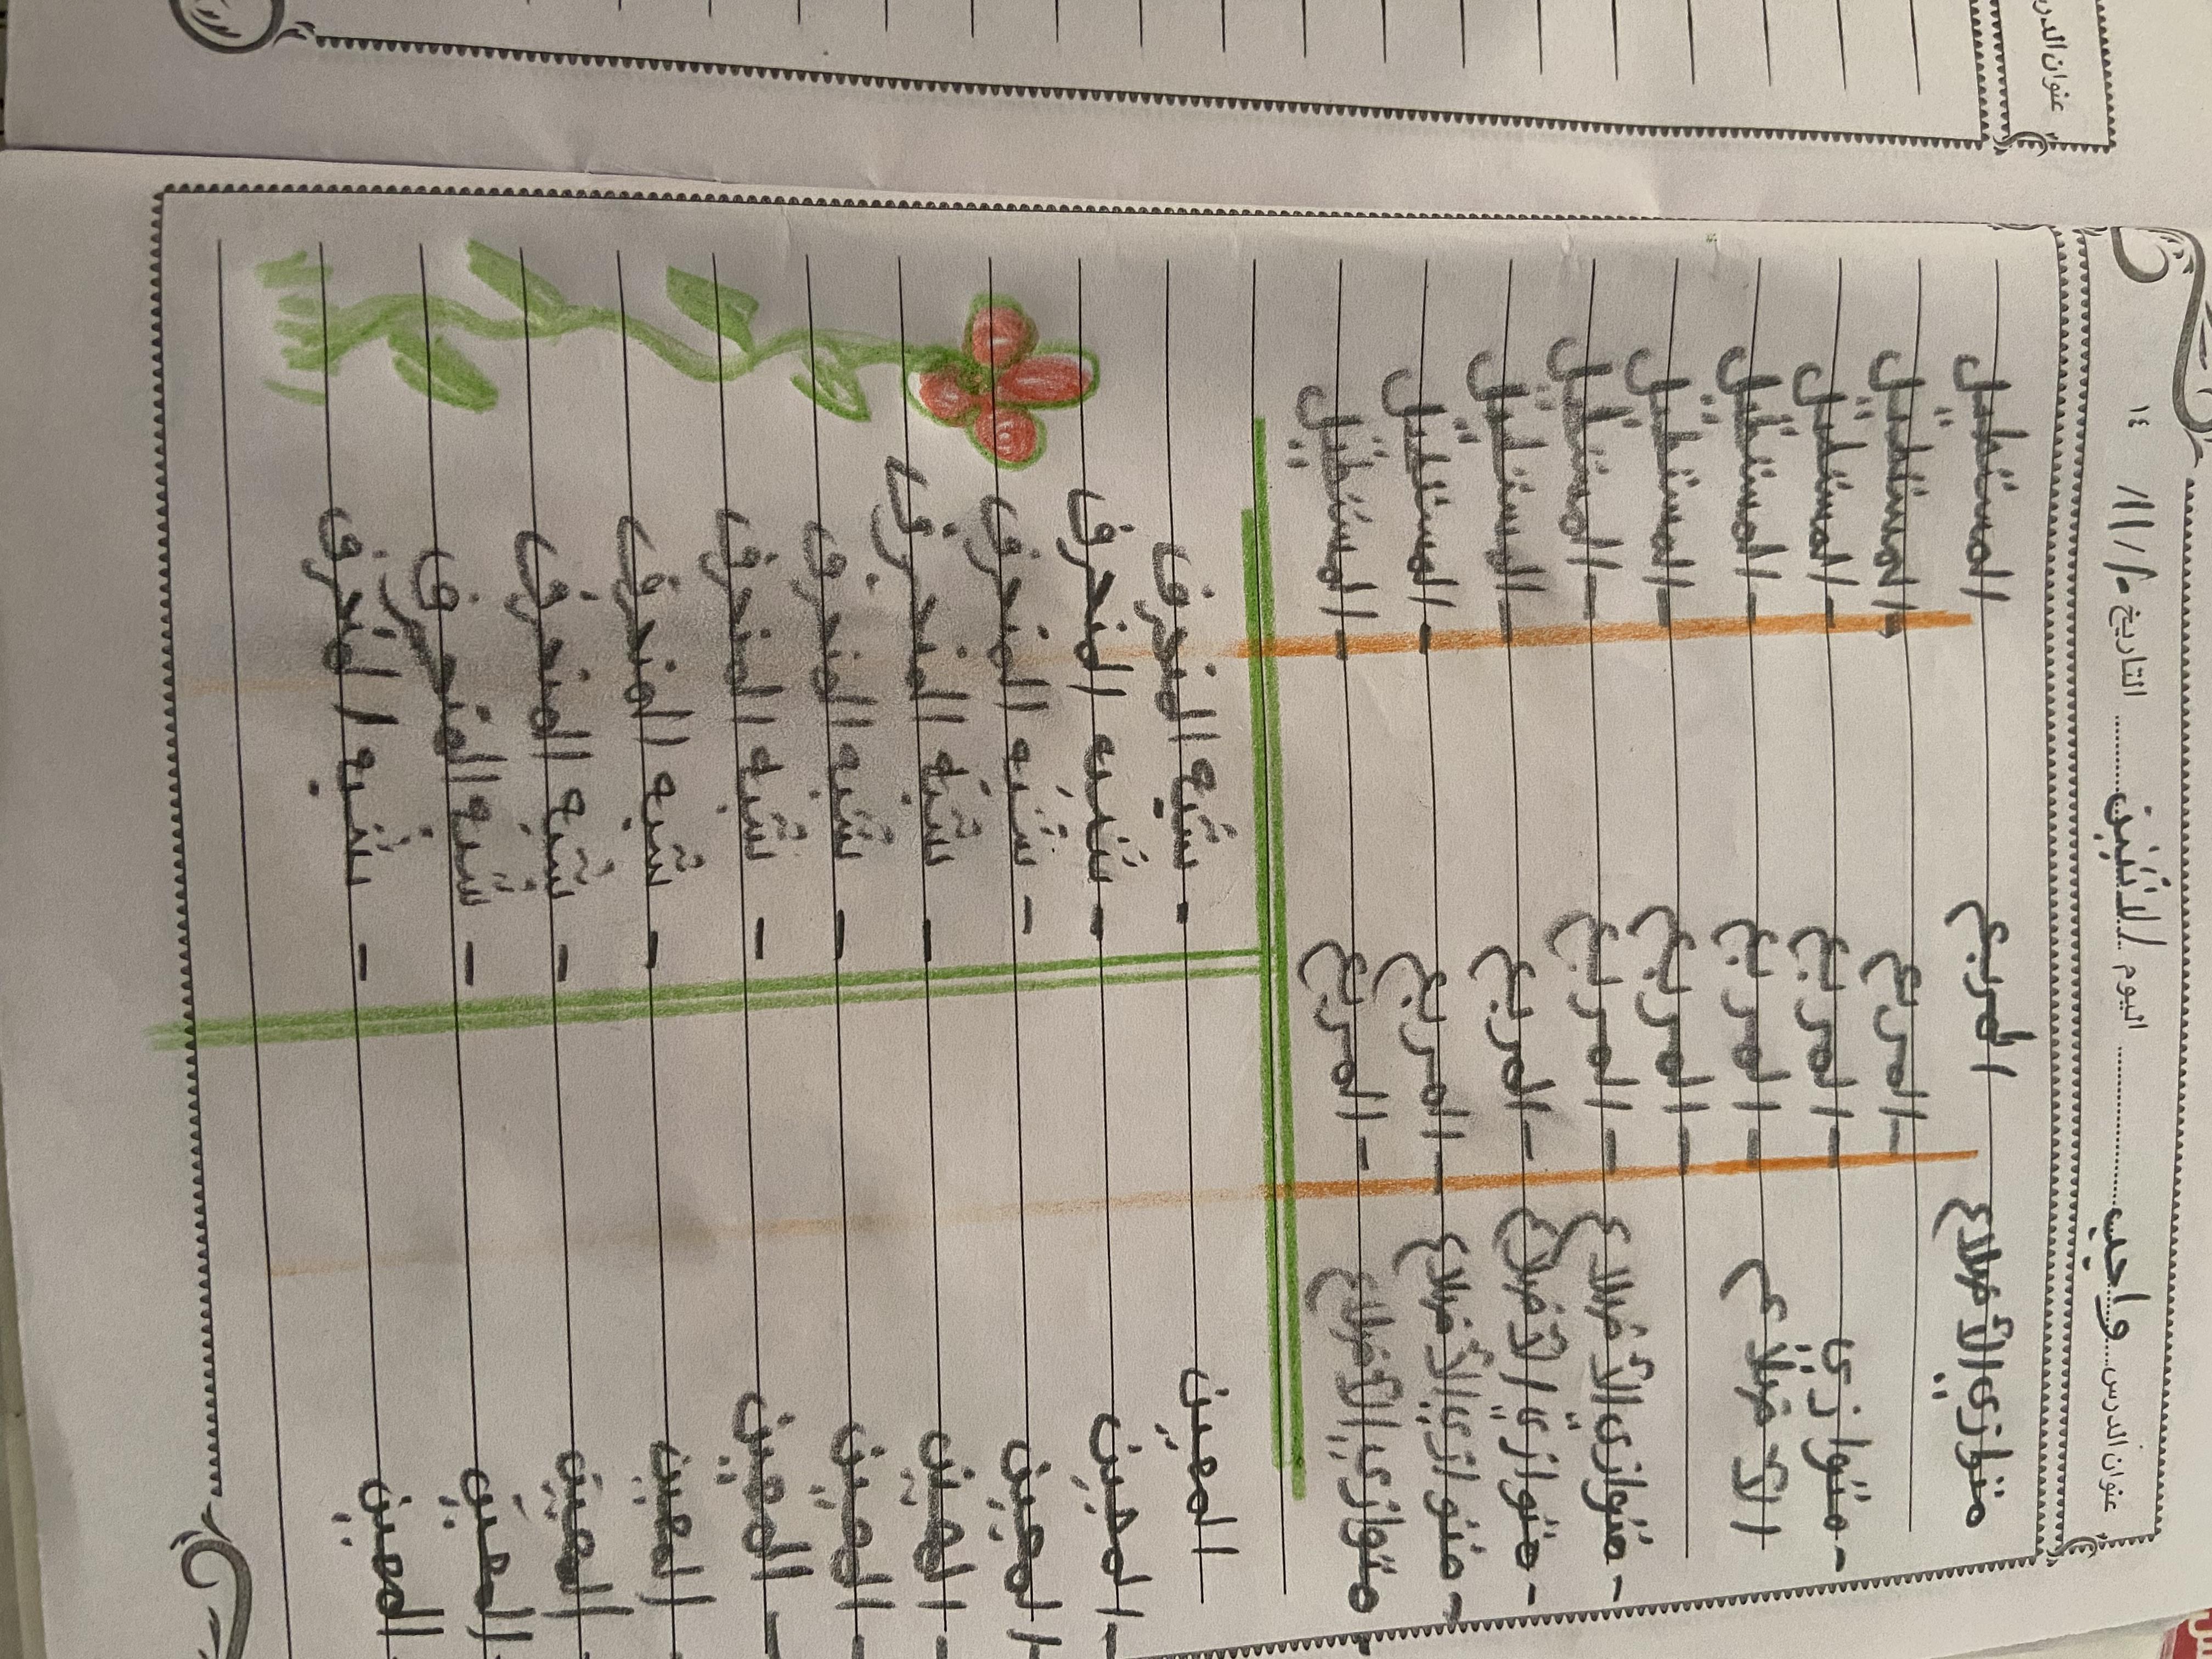 عنوان الدرس واجب اليوم الاثنين التاريخ ٢٠/١١/ ١٤
متوازي الأضلاع المربع المستطيل
- المربع - المستطيل
- متوازي - المربع - المستطيل
الأضلاع - المربع - المستطيل
- المربع - المستطيل
- متوازي الأضلاع - المربع - المستطيل
- متوازي الأضلاع - المربع - المستطيل
- متوازي الأضلاع - المربع - المستطيل
- متوازي الأضلاع - المربع - المستطيل
المعين - شبه المنحرف
- المعين - شبه المنحرف
- المعين - شبه المنحرف
- المعين - شبه المنحرف
- المعين - شبه المنحرف
- المعين - شبه المنحرف
- المعين - شبه المنحرف
- المعين - شبه المنحرف
المعين - شبه المنحرف
المعين - شبه المنحرف
عنوان الدر